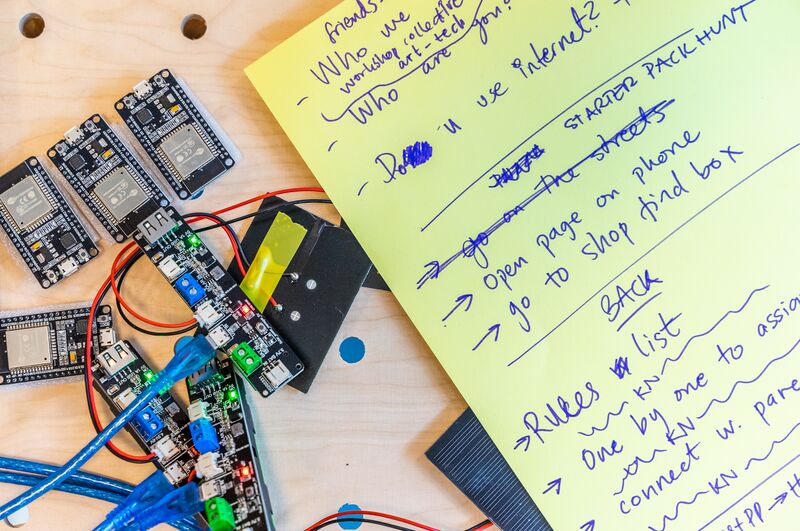 friends-
- Who we
workshop collective
art-tech
- Who are you?
- Do u use internet?
STARTER PACK HUNT
→ go on the streets
→ Open page on phone
→ go to shop find box
BACK
→ Rules list
KN
→ one by one to assig
KN
→ connect w. pare
KN